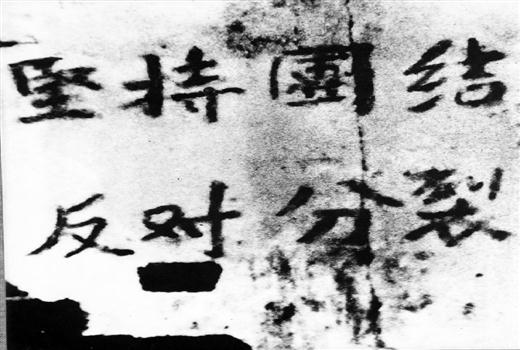 堅持團结
反对分裂